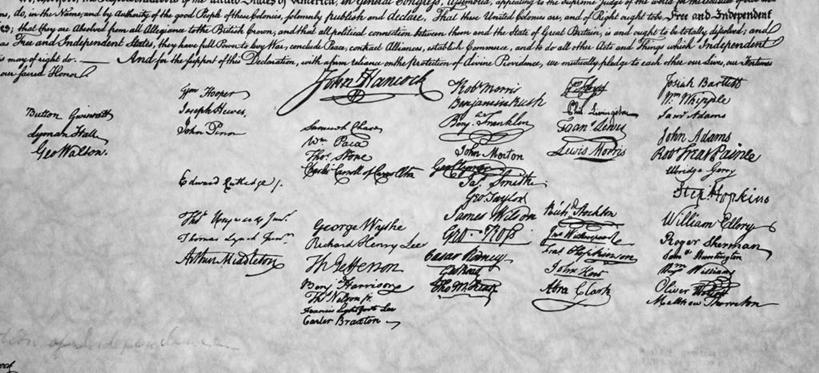 of America, in General Congress, Assembled, appealing to the Supreme Judge of the world for the
do, in the Name, and by Authority of the good People of these Colonies, solemnly publish and declare, That these United Colonies are, and of Right ought to be Free and Independent
that they are Absolved from all Allegiance to the British Crown, and that all political connection between them and the State of Great Britain, is and ought to be totally dissolved; and
as Free and Independent States, they have full Power to levy War, conclude Peace, contract Alliances, establish Commerce, and to do all other Acts and Things which Independent
may of right do. And for the support of this Declaration, with a firm reliance on the Protection of divine Providence, we mutually pledge to each other our Lives, our Fortunes
our sacred Honor
Button Gwinnett
Lyman Hall
Geo Walton.
Wm Hooper
Joseph Hewes,
John Penn
Edward Rutledge
Thos Heyward Junr.
Thomas Lynch Junr.
Arthur Middleton
John Hancock
Samuel Chase
Wm Paca
Thos Stone
Charles Carroll of Carrollton
George Wythe
Richard Henry Lee
Th Jefferson
Benj Harrison
Thos Nelson jr.
Francis Lightfoot Lee
Carter Braxton
Robt Morris
Benjamin Rush
Benj. Franklin
John Morton
Geo Clymer
Jas. Smith
Geo. Taylor
James Wilson
Geo. Ross
Caesar Rodney
Geo Read
Tho M:Kean
Phil. Livingston
Frans. Lewis
Lewis Morris
Richd. Stockton
Jno Witherspoon
Fras. Hopkinson
John Hart
Abra Clark
Josiah Bartlett
Wm Whipple
Saml Adams
John Adams
Robt Treat Paine
Elbridge Gerry
Step. Hopkins
William Ellery
Roger Sherman
Saml Huntington
Wm Williams
Oliver Wolcott
Matthew Thornton